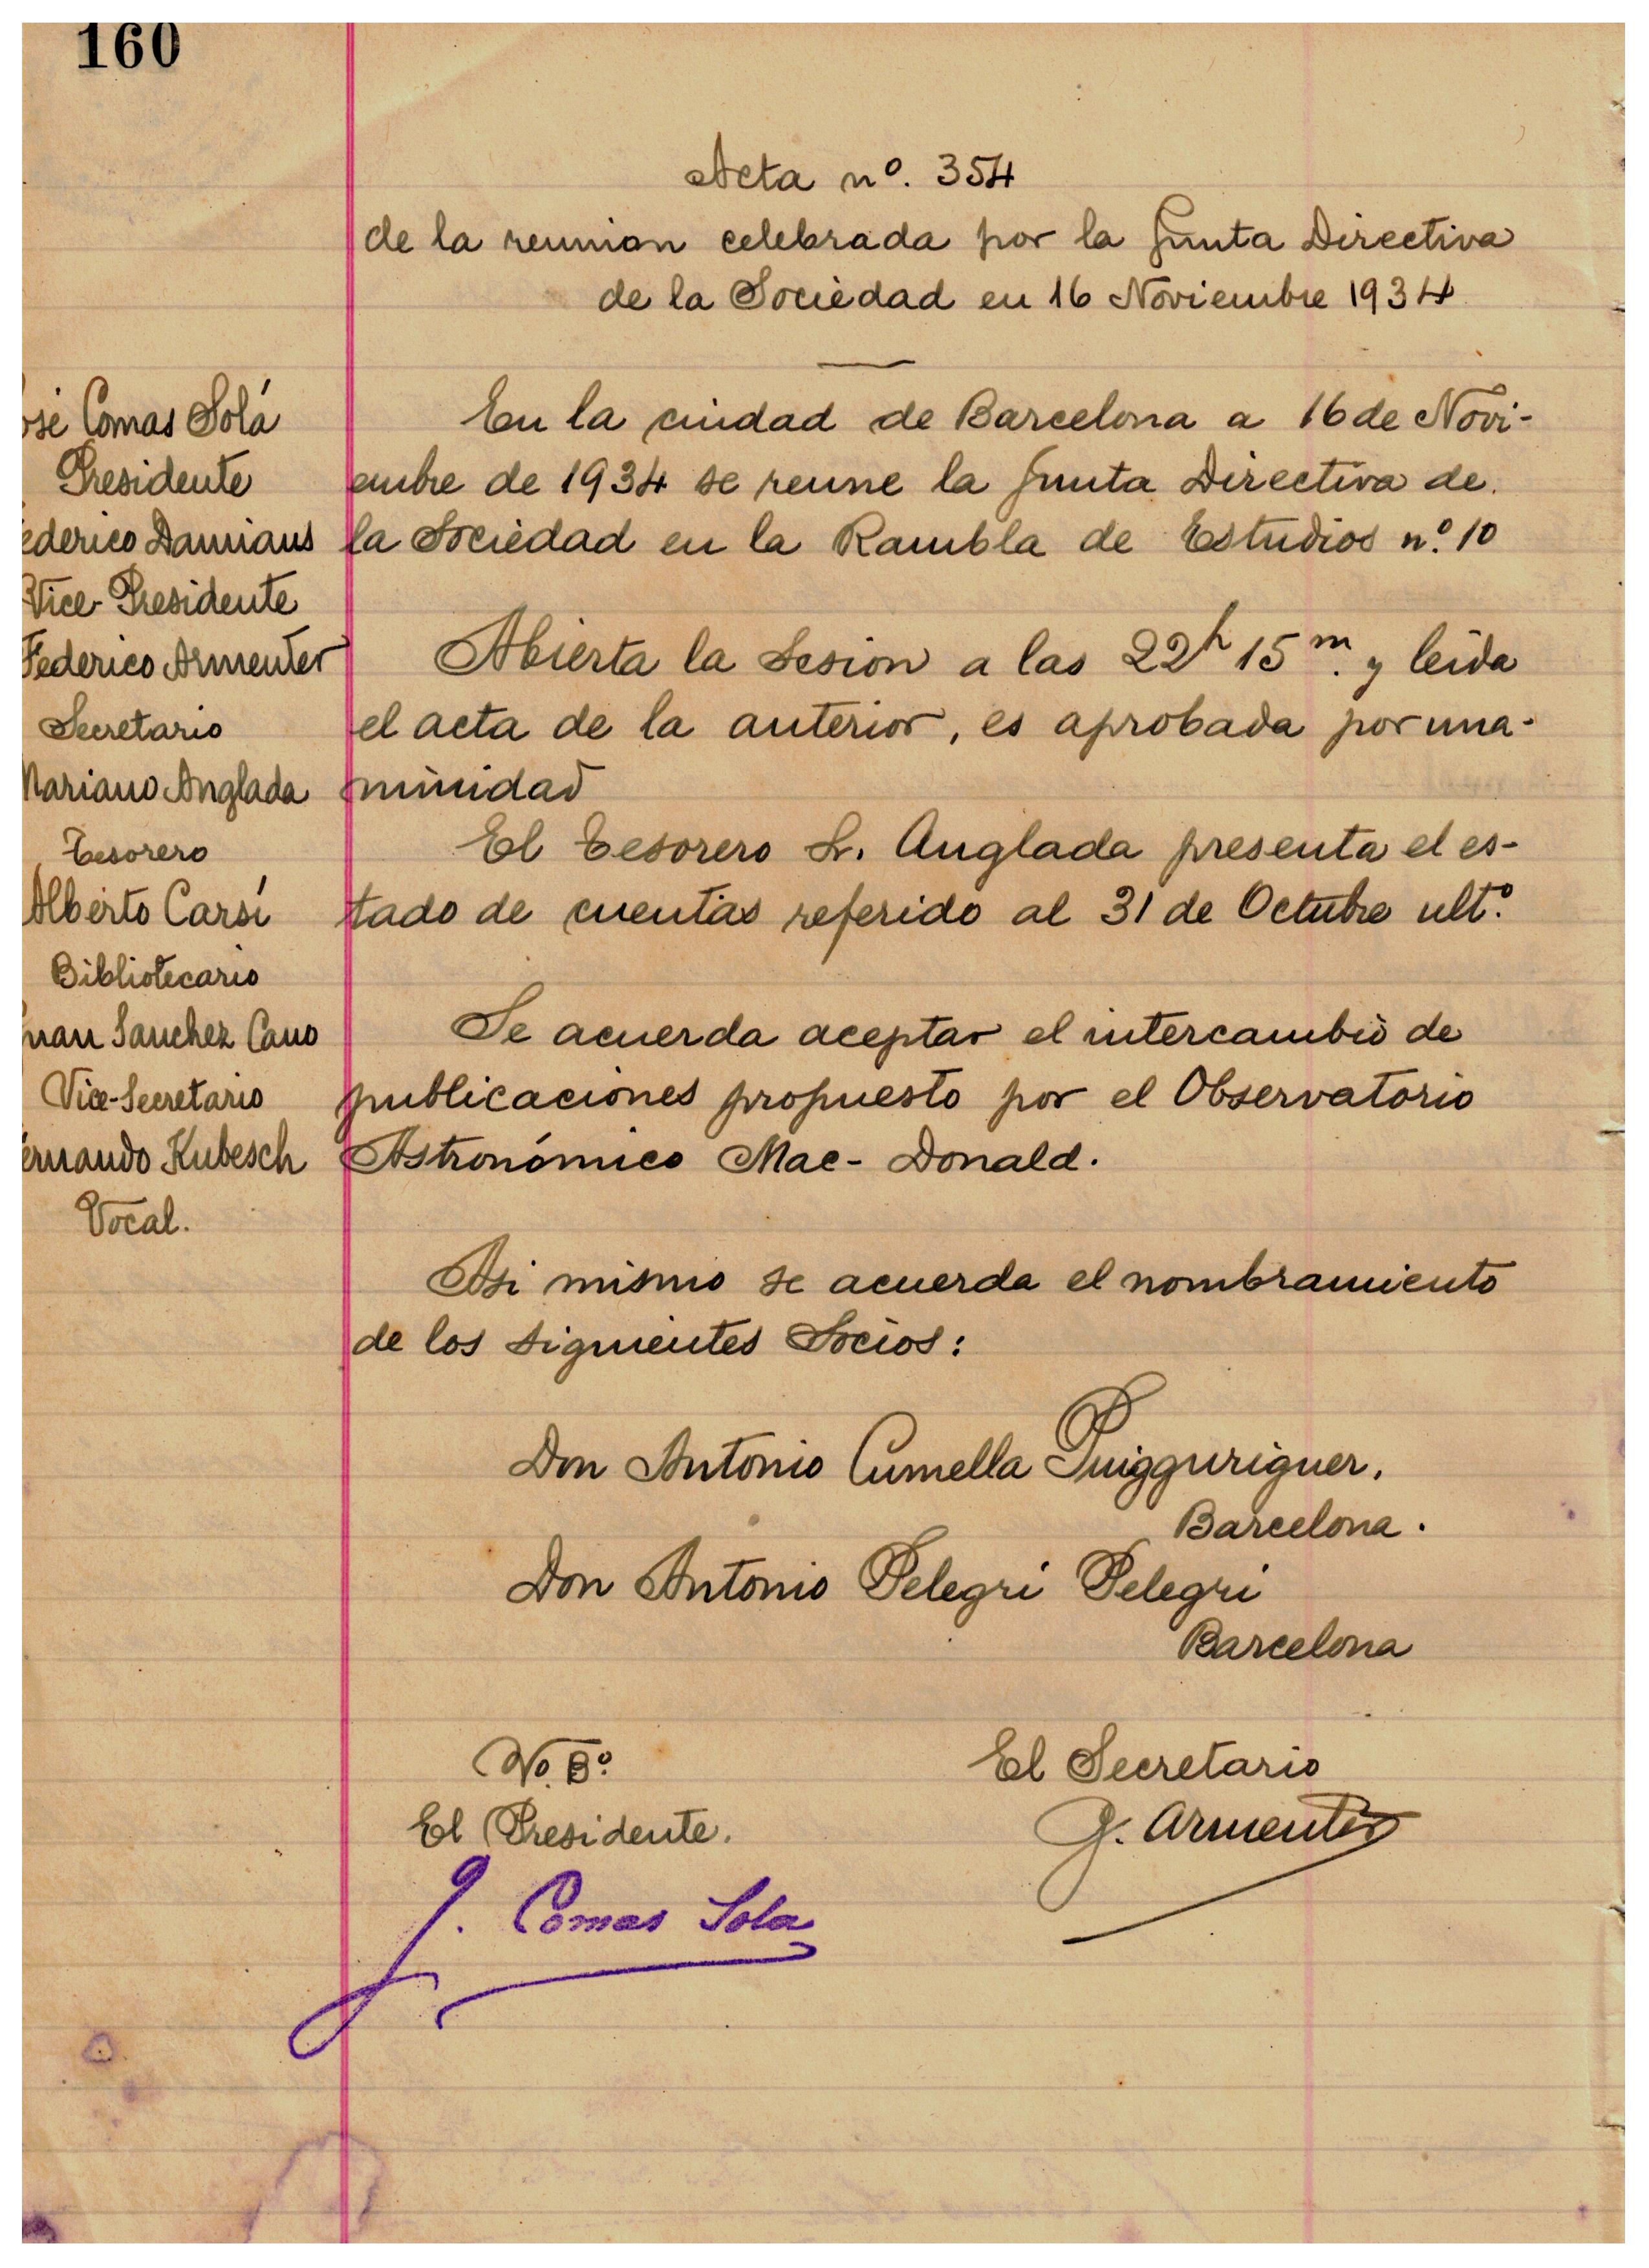 160
Acta nº. 354
de la reunion celebrada por la Junta Directiva
de la Sociedad en 16 Noviembre 1934
osé Comas Solá
Presidente
ederico Damians
Vice-Presidente
Federico Armenter
Secretario
Mariano Anglada
Tesorero
Alberto Carsí
Bibliotecario
Juan Sanchez Cano
Vice-Secretario
ernando Kubesch
Vocal.
En la ciudad de Barcelona a 16 de Novi-
embre de 1934 se reune la Junta Directiva de
la Sociedad en la Rambla de Estudios nº. 10
Abierta la sesion a las 22h 15m. y leida
el acta de la anterior, es aprobada por una-
nimidad
El Tesorero Sr. Anglada presenta el es-
tado de cuentas referido al 31 de Octubre ultº.
Se acuerda aceptar el intercambio de
publicaciones propuesto por el Observatorio
Astronómico Mac-Donald.
Asi mismo se acuerda el nombramiento
de los siguientes Socios:
Don Antonio Cumella Puigguriguer,
Barcelona.
Don Antonio Pelegri Pelegri
Barcelona
Vo. Bº.
El Presidente.
J. Comas Sola
El Secretario
F. Armenter